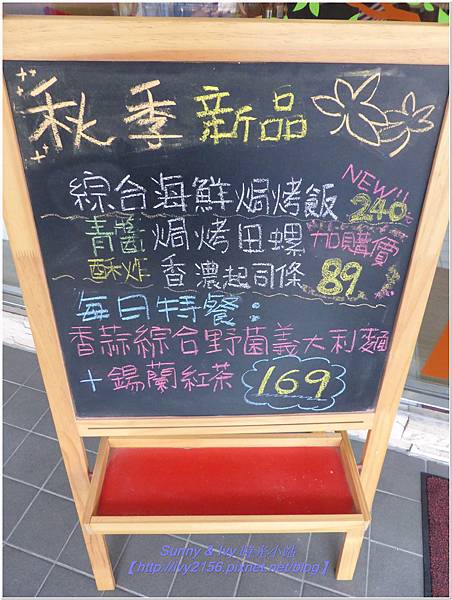 秋季新品
綜合海鮮焗烤飯 NEW!! 240元
青醬焗烤田螺 加購價
酥炸香濃起司條 89
每日特餐：
香蒜綜合野菌義大利麵
+錫蘭紅茶 169
Sunny & Ivy 時光小旅
【http://ivy2156.pixnet.net/blog】